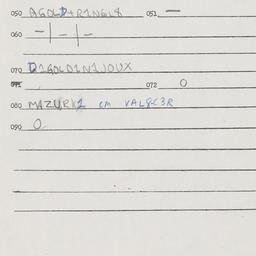 050 AGOLD+R1NGL8 051 —
060 -|-|-
070 D1GOLD1N1JOUX
071 072 0
080 MAZURK1 EM VALSC3R
090 0